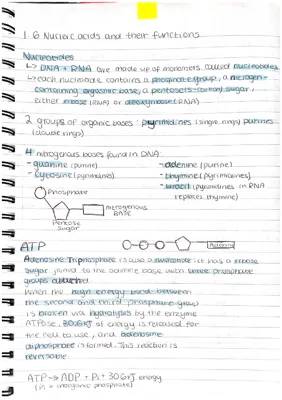 1.6 Nucleic acids and their functions
Nucleotides
↳ DNA + RNA are made up of monomers called nucleotides
↳ each nucleotide contains a phosphate group, a nitrogen-
containing organic base, a pentose (5-carbon) sugar,
either ribose (RNA) or deoxyribose (RNA)
2 groups of organic bases: pyrimidines (single rings) purines
(double rings)
4 nitrogenous bases found in DNA
- guanine (purine) - adenine (purine)
- cytosine (pyrimidines) - thymine (pyrimidines)
- uracil (pyrimidines in RNA
replaces thymine)
Phosphate
nitrogenous
BASE
Pentose
sugar
ATP
Adenine
Adenosine Triphosphate is also a nucleotide. It has a ribose
sugar joined to the adenine base with three phosphate
groups attached
When the high energy bond between
the second and third phosphate group
is broken via hydrolysis by the enzyme
ATPase, 30.6KJ of energy is released for
the cell to use, and adenosine
diphosphate is formed. This reaction is
reversable.
ATP → ADP + Pi + 30.6KJ energy
(Pi = inorganic phosphate)